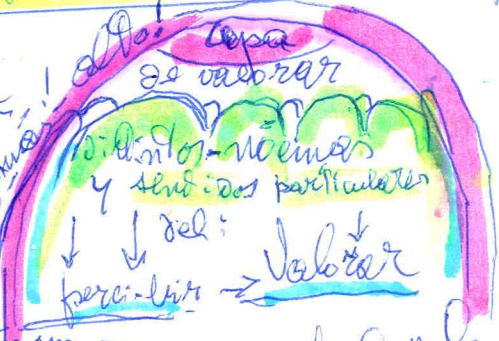 alto!
Copa
de valorar
distintos-nóemas
y sentidos particulares
del:
perci-bir → Valorar